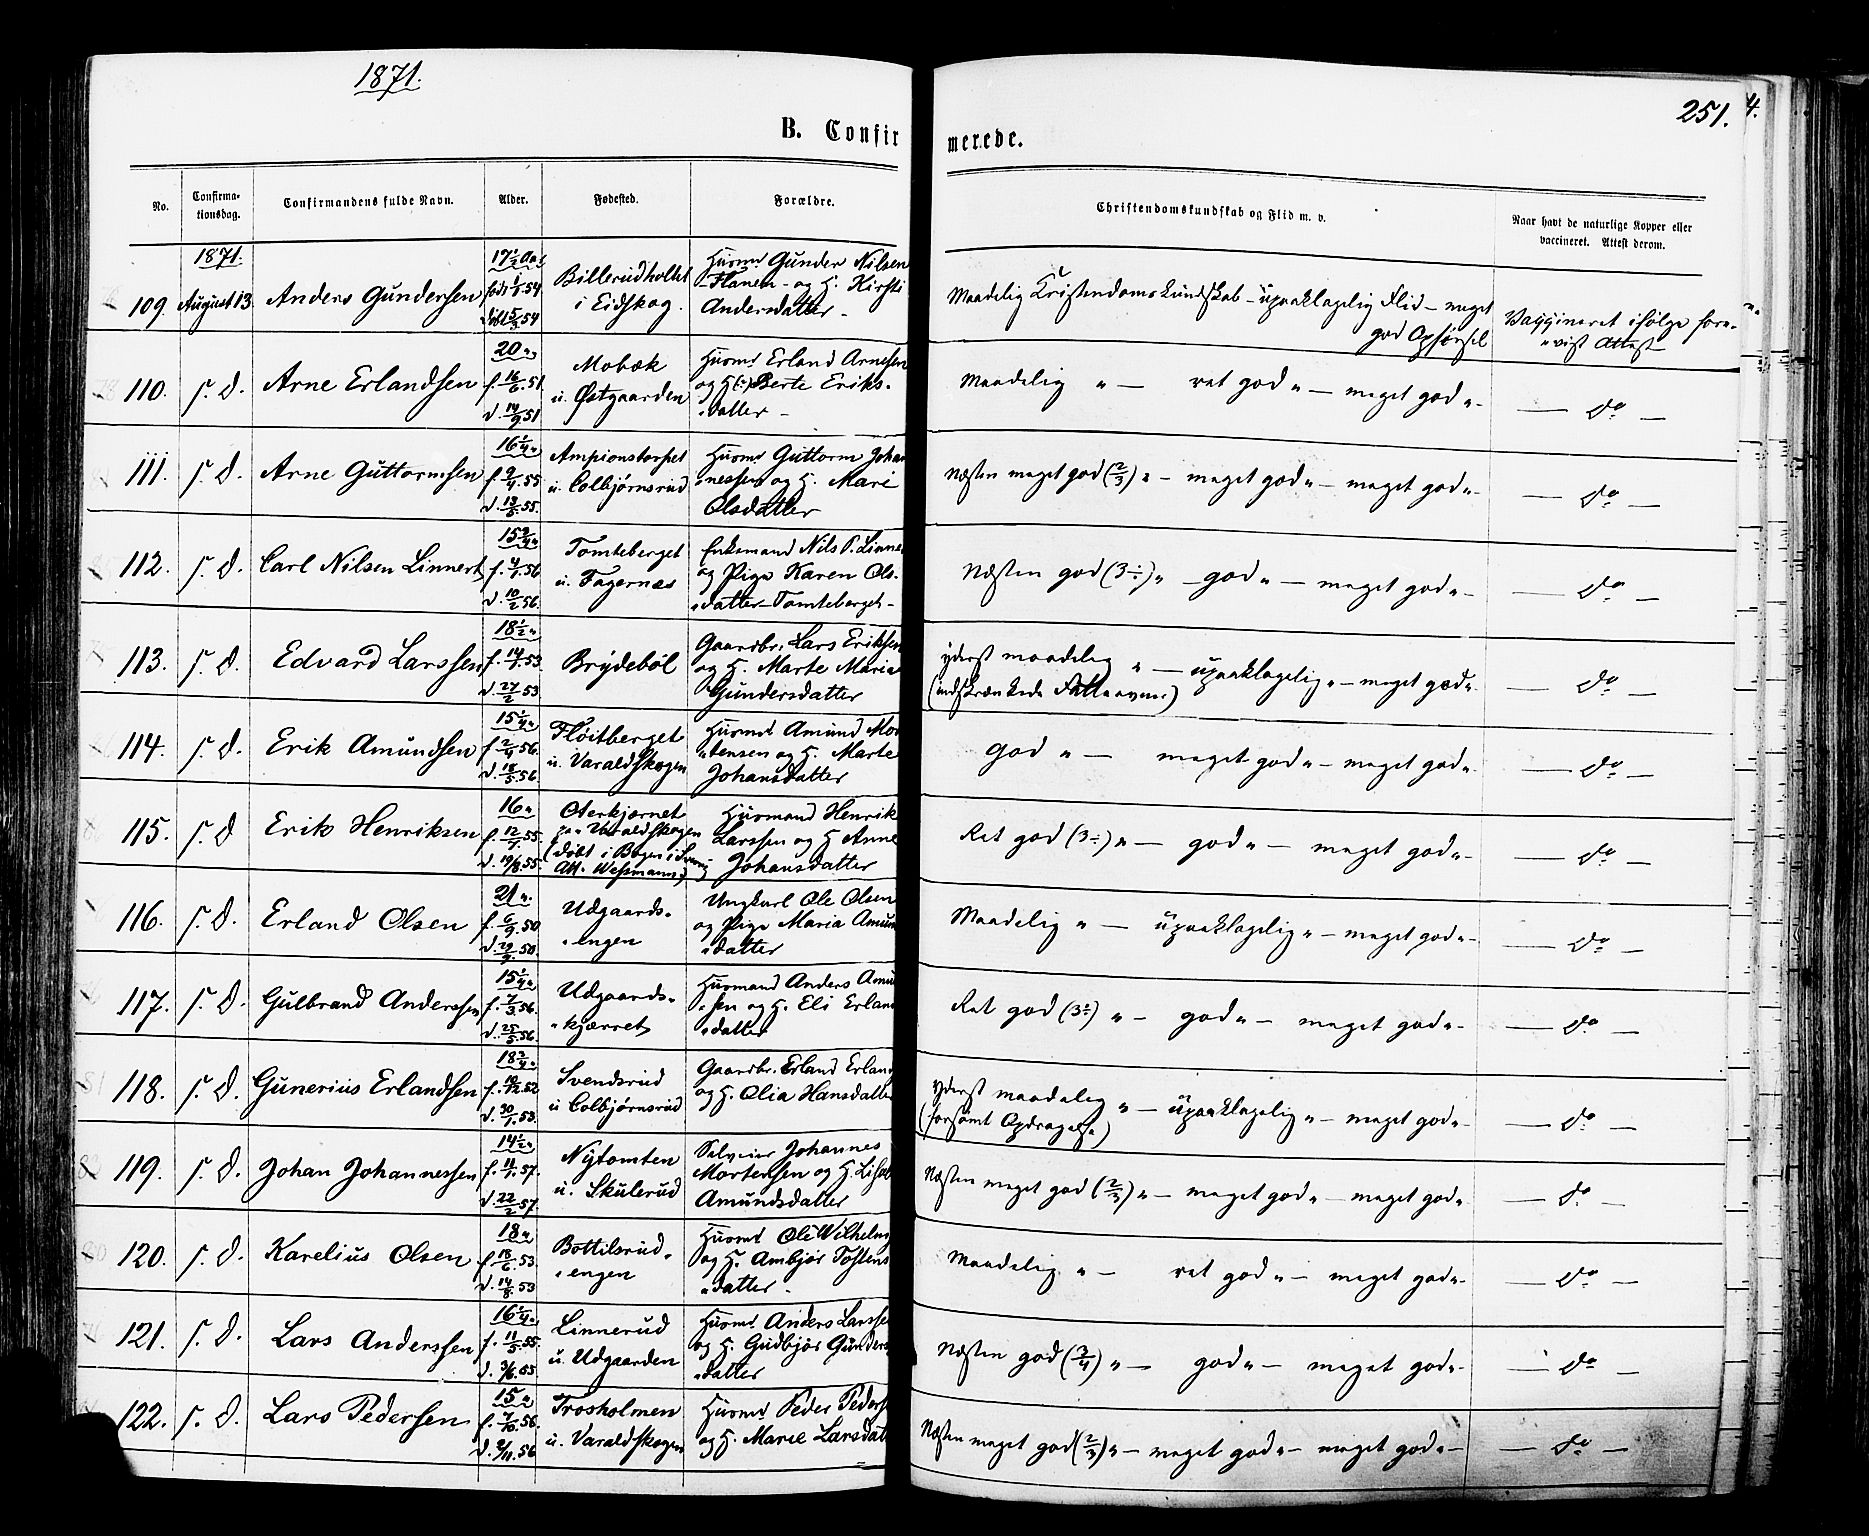 1871.
251.
4.
B. Confir
merede.
No.
Confirma-
tionsdag.
Confirmandens fulde Navn.
Alder.
Fødested.
Forældre.
Christendomskundskab og Flid m. v.
Naar havt de naturlige Kopper eller
vaccineret. Attest derom.
1871.
109. August 13. Anders Gundersen
17 1/2 Aar
Billerudholtet
i Eidskog.
Husmd Gunder Nilsen
Flanen - og H. Kirsti
Andersdatter -
Maadelig Kristendomskundskab - upaaklagelig Flid - meget
god Opførsel
Vaccineret ifølge fore-
"vist Attest
110. s. d. Arne Erlandsen
20 "
f. 16/6 51
d. 14/9 51
Mobæk
u. Østgaarden
Husmd Erland Arnesen
og H (:) Berte Eriks-
"datter -
Maadelig " - ret god " - meget god " -
— do —
111. s. d. Arne Guttormsen
16 1/4 "
f. 9/4 55
d. 13/5 55.
Ampionstorpet
u. Colbjørnsrud
Husmd Guttorm Johan
"nessen og H. Mari
Olsdatter
Næsten meget god (2/3) " - meget god " - meget god " -
— do —
112. s. d. Carl Nilsen Linnert
15 2/4 "
d. 10/2 56.
Tomteberget
u. Fagernæs
Enkemand Nils P. Linne
og Pige Karen Ols-
"datter - Tomteberget -
Næsten god (3÷) " - god " - meget god " -
— do —
113. s. d. Edvard Larssen
18 1/2 "
d. 27/2 53
Brydebøl
Gaardbr. Lars Eriksen
og H. Marte Maria
Gundersdatter
yderst maadelig " - upaaklagelig " - meget god "
(indskrænkede Fatteevner)
— do —
114. s. d. Erik Amundsen
15 1/4 "
f. 2/4 56.
d. 18/5 56.
Fløitberget
u. Varaldskogen
Husmd Amund Mor
"tensen og H. Marte
Johansdatter
God " - meget god " - meget god "
— do —
115. s. d. Erik Henriksen
16 "
f. 12/7 55.
d. 19/8 55.
Oterkjernet
paa Varaldskogen
(døbt i Bogen i
Att. Wessmann)
Husmand Henrik
Larssen og H Anne
Johansdatter
Ret god (3÷) " - god " - meget god " -
— do —
116. s. d. Erland Olsen
21 ".
f. 6/9 50
d. 29/9 50.
Udgaards-
"engen
Ungkarl Ole Olsen
og Pige Maria Amun
"datter
Maadelig " - upaaklagelig " - meget god " -
— do —
117. s. d. Gulbrand Anderssen
15 1/4 "
f. 7/3 56.
d. 25/5 56.
Udgaards-
"kjærret
Husmand Anders Amu
"sen og H. Eli Erlan
"datter
Ret god (3÷) " - god " - meget god " -
— do —
118. s. d. Gunerius Erlandsen
18 2/4 "
d. 30/1 53.
Svendsrud
u Colbjørnsrud
Gaardbr. Erland Erlan
og H. Olia Hansdatter
Yderst maadelig " - upaaklagelig " - meget god " -
(forsømt Opdragelse)
— do —
119. s. d. Johan Johannessen
14 1/2 "
f. 11/1 57.
d. 22/2 57.
Nytomten
u. Skulerud
Selveier Johannes
Mortensen og H. Lisab
Amundsdatter
Næsten meget god (2/3) " - meget god " - meget god "
— do —
120. s. d. Karelius Olsen
18 "
f. 18/6 53.
d. 14/8 53
Bottilsrud-
"engen
Husmd Ole Wilhelms
og H. Ambjør Tostens
"datter -
Maadelig. " - ret god " - meget god " -
— do —
121. s. d. Lars Anderssen
16 1/4 "
f. 11/5 55.
d. 3/6 55
Linnerud
u. Udgaarden
Husmd Anders Larsse
og H. Gudbjør Gunders
"datter
Næsten god (3/4) " - god " - meget god " -
— do —
122. s. d. Lars Pedersen
15 "
f. 7/10 56.
d. 2/11 56
Trosholmen
u. Varaldskogen
Husmd Peder Peders
og H. Marie Larsdat
Næsten meget god (2/3) " - meget god " - meget god " -
— do —